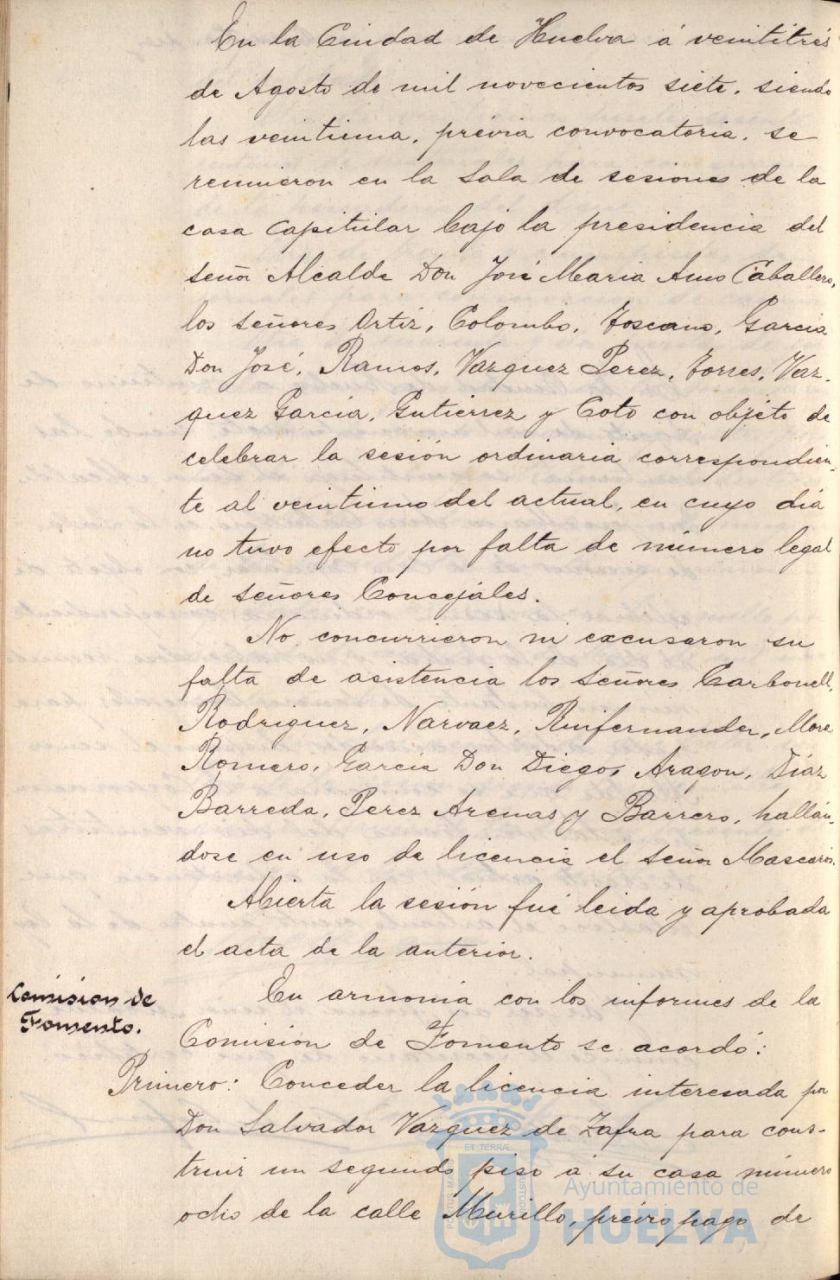 En la Ciudad de Huelva á veintitrés
de Agosto de mil novecientos siete, siendo
las veintiuna, prévia convocatoria, se
reunieron en la Sala de sesiones de la
casa Capitular bajo la presidencia del
señor Alcalde Don José Maria Amo Caballero,
los señores Ortiz, Colombo, Toscano, Garcia
Don José, Ramos, Vazquez Perez, Torres, Vaz-
quez Garcia, Gutierrez y Coto con objeto de
celebrar la sesión ordinaria correspondien-
te al veintiuno del actual, en cuyo día
no tuvo efecto por falta de número legal
de señores Concejales.
No concurrieron ni excusaron su
falta de asistencia los señores Carbonell,
Rodriguez, Narvaez, Ruifernandez, More
Romero, Garcia Don Diego, Aragon, Díaz
Barreda, Perez Arenas y Barrero, hallán-
dose en uso de licencia el señor Mascarós.
Abierta la sesión fué leida y aprobada
el acta de la anterior.
Comision de
Fomento.
En armonia con los informes de la
Comisión de Fomento se acordó:
Primero: Conceder la licencia interesada por
Don Salvador Vazquez de Zafra para cons-
truir un segundo piso á su casa número
ocho de la calle Murillo, prévio pago de
Ayuntamiento de
HUELVA